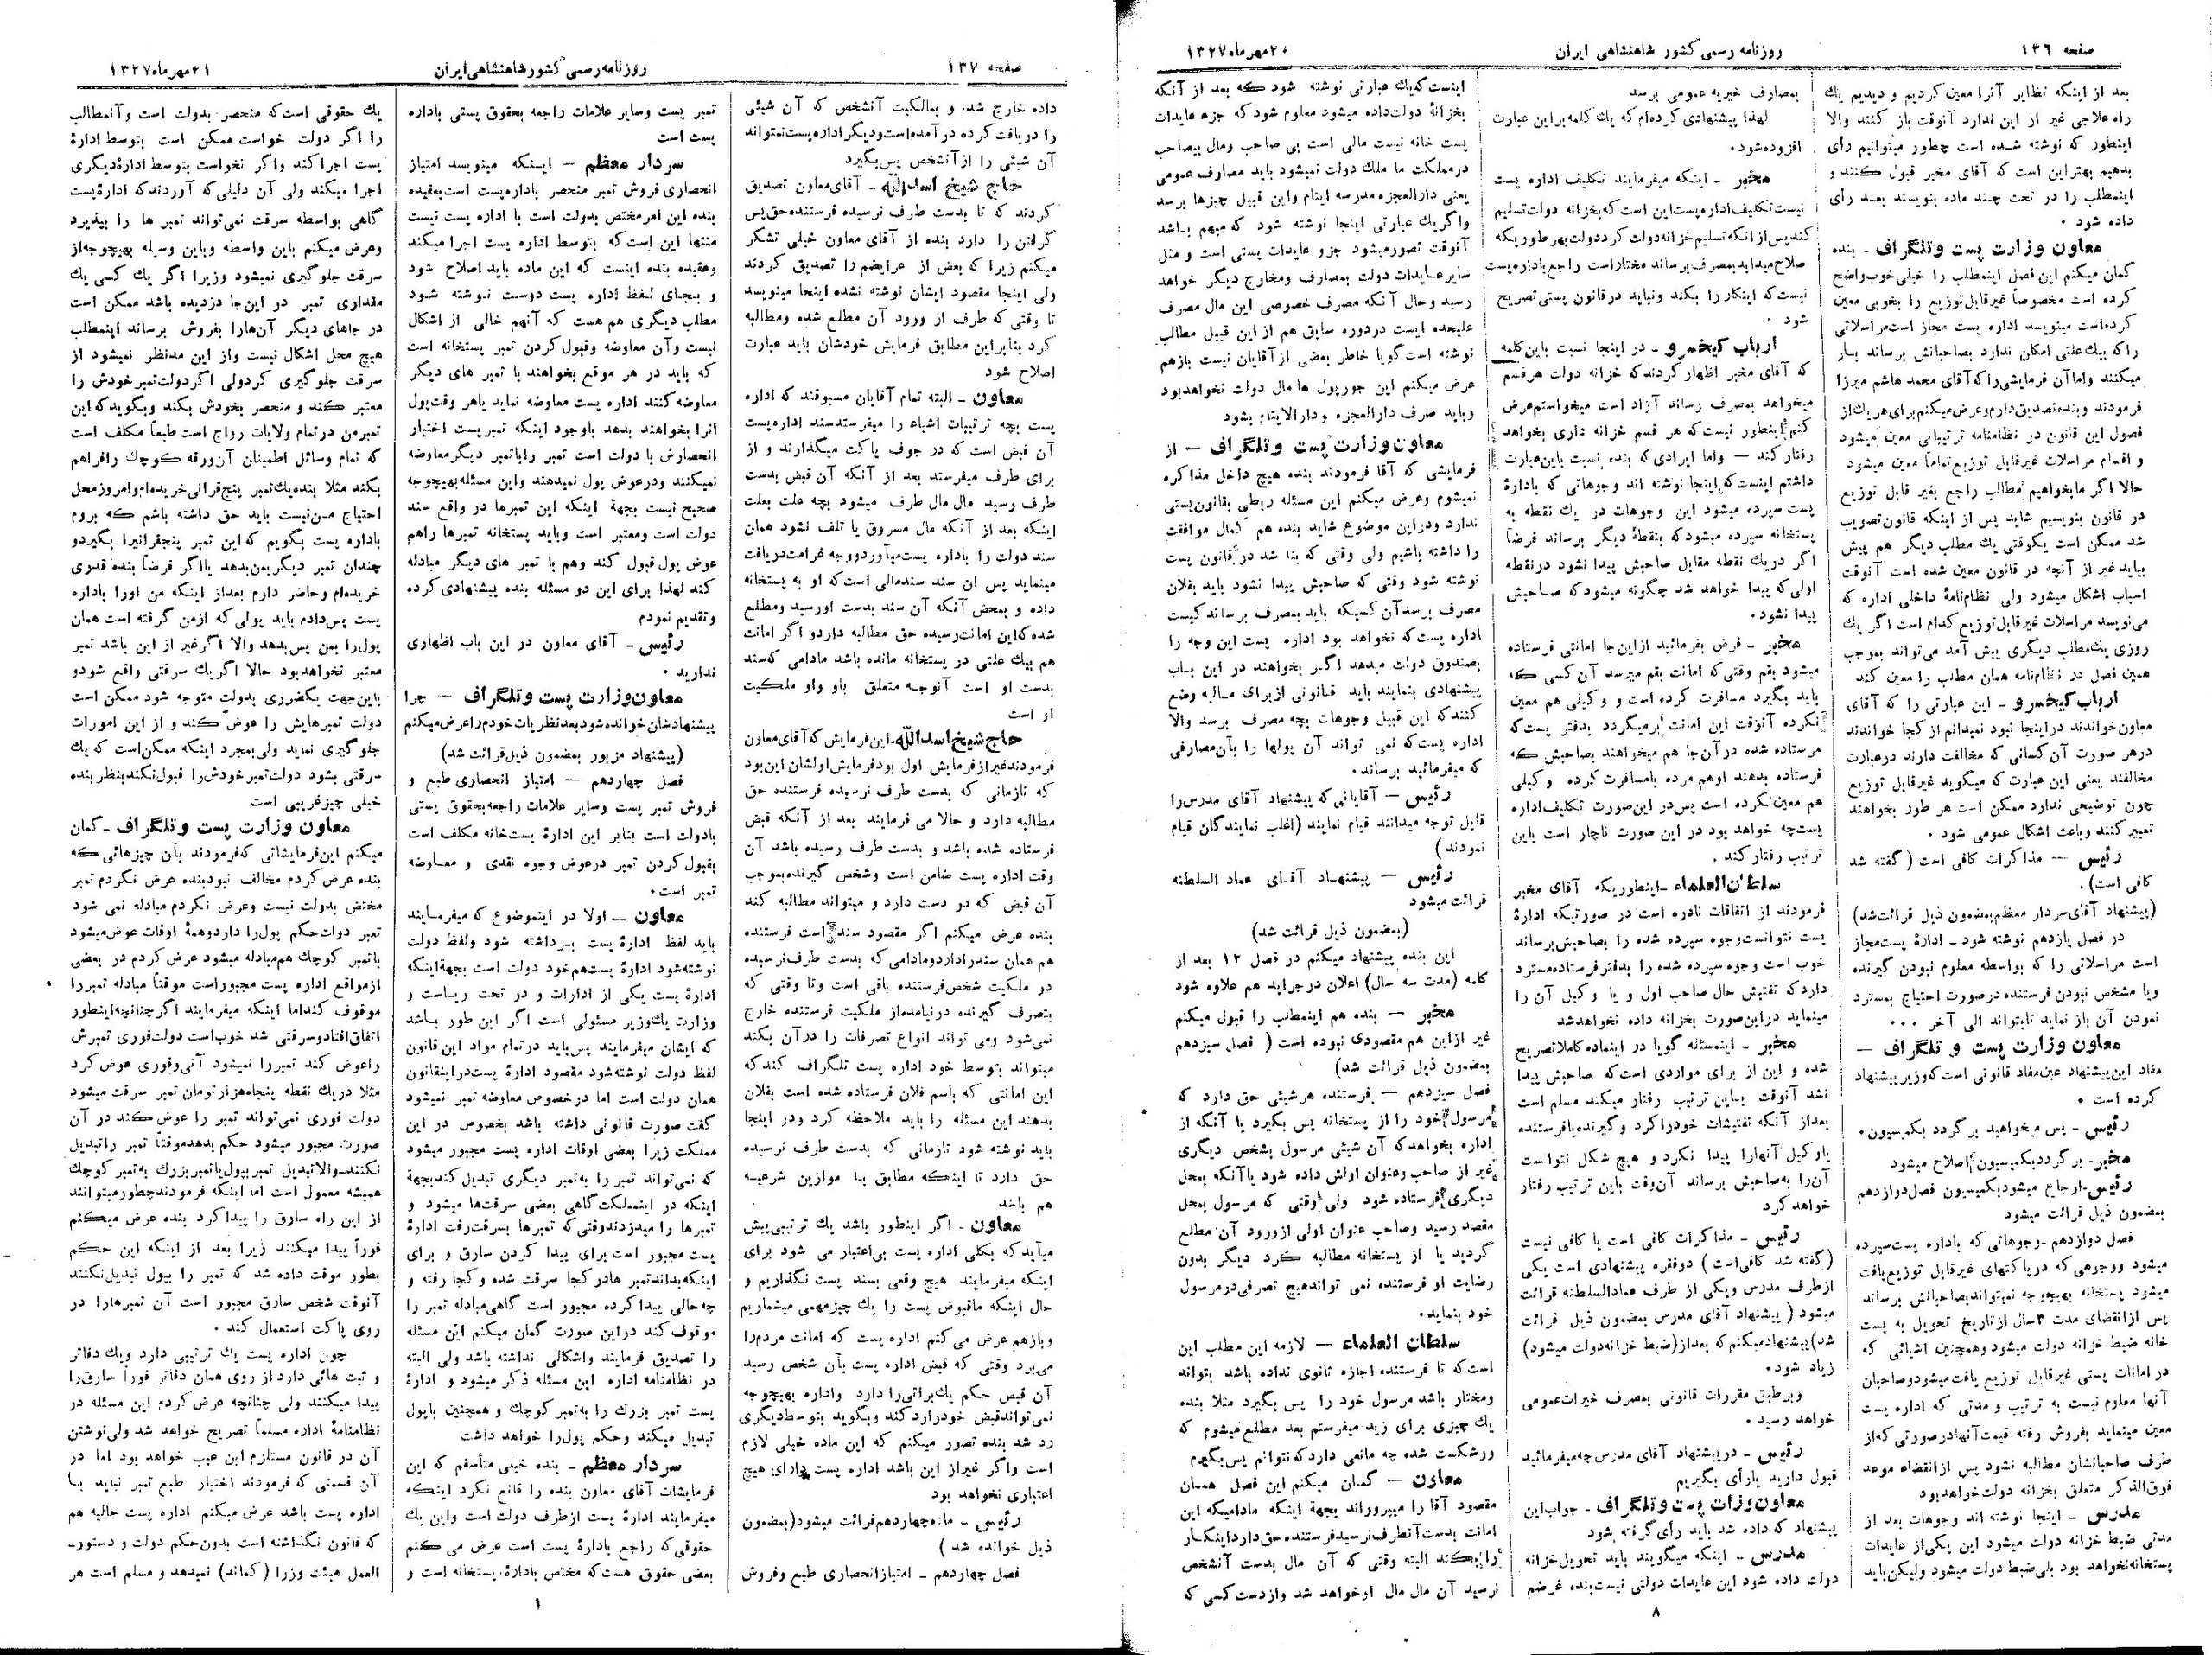 صفحه ۱۳۶
روزنامه رسمی کشور شاهنشاهی ایران
۲۰مهرماه۱۳۲۷
بعد از اینکه نظایر آنرا معین کردیم و دیدیم یك
راه علاجی غیر از این ندارد آنوقت باز کنند والا
اینطور که نوشته شده است چطور میتوانیم رأی
بدهیم بهتراین است که آقای مخبر قبول کنند و
اینمطلب را در تحت چند ماده بنویسند بعد رأی
داده شود .
معاون وزارت پست وتلگراف ـ بنده
گمان میکنم این فصل اینمطلب را خیلی خوب واضح
کرده است مخصوصاً غیرقابل توزیع را بخوبی معین
کرده‌است مینویسد اداره پست مجاز است مراسلاتی
راکه بیك‌علتی امکان ندارد بصاحبانش برساند باز
میکنند واما آن فرمایشی‌راکه آقای محمد هاشم میرزا
فرمودند وبنده تصدیق دارم وعرض میکنم برای هر یك از
فصول این قانون در نظامنامه ترتیباتی معین میشود
و اقسام مراسلات غیرقابل توزیع تماماً معین میشود
حالا اگر مابخواهیم مطالب راجع بغیر قابل توزیع
در قانون بنویسیم شاید پس از اینکه قانون تصویب
شد ممکن است یکوقتی یك مطلب دیگر هم پیش
بیاید غیر از آنچه در قانون معین شده است آنوقت
اسباب اشکال میشود ولی نظام‌نامهٔ داخلی اداره که
می‌نویسد مراسلات غیرقابل توزیع کدام است اگر یك
روزی یك‌مطلب دیگری پیش آمد می‌تواند بموجب
همین فصل در نظام‌نامه همان مطلب را معین کند
ارباب کیخسرو ـ این عبارتی را که آقای
معاون خواندند در اینجا نبود نمیدانم از کجا خواندند
درهر صورت آن کسانی که مخالفت دارند درعبارت
مخالفند یعنی این عبارت که میگوید غیرقابل توزیع
چون توضیحی ندارد ممکن است هر طور بخواهند
تعبیر کنند وباعث اشکال عمومی شود .
رئیس — مذاکرات کافی است ( گفته شد
کافی است) .
(پیشنهاد آقای سردار معظم بمضمون ذیل قرائت‌شد)
در فصل یازدهم نوشته شود ـ ادارهٔ پست مجاز
است مراسلاتی را که بواسطه معلوم نبودن گیرنده
ویا مشخص نبودن فرستنده درصورت احتیاج بمسترد
نمودن آن باز نماید تابتواند الی آخر . . .
معاون وزارت پست و تلگراف —
مفاد این پیشنهاد عین مفاد قانونی است که وزیر پیشنهاد
کرده است .
رئیس ـ پس میخواهید بر گردد بکمیسیون.
مخبر ـ برگردد بکمیسیون اصلاح میشود
رئیس ـ ارجاع میشود بکمیسیون فصل دوازدهم
بمضمون ذیل قرائت میشود
فصل دوازدهم ـ وجوهاتی که باداره پست سپرده
میشود ووجوهی که درپاکتهای غیرقابل توزیع یافت
میشود پستخانه بهیچوجه نمیتواند بصاحبانش برساند
پس از انقضای مدت ۳ سال از تاریخ تحویل به پست
خانه ضبط خزانه دولت میشود وهمچنین اشیائی که
در امانات پستی غیرقابل توزیع یافت میشود وصاحبان
آنها معلوم نیست به ترتیب و مدتی که اداره پست
معین مینماید بفروش رفته قیمت آنها در صورتی که از
طرف صاحبانشان مطالبه نشود پس از انقضاء موعد
فوق‌الذکر متعلق بخزانه دولت خواهد بود
مدرس ـ اینجا نوشته اند وجوهات بعد از
مدتی ضبط خزانه دولت میشود این یکی از عایدات
پستخانه نخواهد بود بلی ضبط دولت میشود ولیکن باید
بمصارف خیریه عمومی برسد
لهذا پیشنهادی کرده‌ام که یك کلمه براین عبارت
افزوده شود.
مخبر ـ اینکه میفرمایند تکلیف اداره پست
نیست تکلیف اداره پست این است که بخزانه دولت تسلیم
کند پس از آنکه تسلیم خزانه دولت کرد دولت بهر طوریکه
صلاح میداند بمصرف برساند مختار است راجع باداره پست
نیست که اینکار را بکند ونباید در قانون پستی تصریح
شود .
ارباب کیخسرو ـ در اینجا نسبت باین کلمه
که آقای مخبر اظهار کردند که خزانه دولت هرقسم
میخواهد بمصرف رساند آزاد است میخواستم عرض
کنم اینطور نیست که هر قسم خزانه داری بخواهد
رفتار کند — واما ایرادی که بنده نسبت باین عبارت
داشتم اینست که اینجا نوشته اند وجوهاتی که بادارهٔ
پست سپرده میشود این وجوهات در یك نقطه به
پستخانه سپرده میشود که بنقطهٔ دیگر برساند فرضاً
اگر در یك نقطه مقابل صاحبش پیدا نشود در نقطه
اولی که پیدا خواهد شد چگونه میشود که صاحبش
پیدا نشود.
مخبر ـ فرض بفرمائید از این جا امانتی فرستاده
میشود بقم وقتی که امانت بقم میرسد آن کسی که
باید بگیرد مسافرت کرده است و وکیلی هم معین
نکرده آنوقت این امانت برمیگردد بدفتر پست که
فرستاده شده در آن‌جا هم میخواهند بصاحبش که
فرستاده بدهند اوهم مرده یامسافرت کرده و وکیلی
هم معین نکرده است پس در این صورت تکلیف اداره
پست چه خواهد بود در این صورت ناچار است باین
ترتیب رفتار کند .
سلطان‌العلماء ـ اینطوریکه آقای مخبر
فرمودند از اتفاقات نادره است در صورتیکه ادارهٔ
پست نتوانست وجوه سپرده شده را بصاحبش برساند
خوب است وجوه سپرده شده را بدفتر فرستاده مسترد
دارد که تفتیش حال صاحب اول و یا وکیل آن را
مینماید در این‌صورت بخزانه داده نخواهد شد
مخبر ـ اینمسئله گویا در اینماده کاملا تصریح
شده و این از برای مواردی است که صاحبش پیدا
نشد آنوقت باین ترتیب رفتار میکند مسلم است
بعد از آنکه تفتیشات خود را کرد و گیرنده یا فرستنده
یا وکیل آنها را پیدا نکرد و هیچ شکل نتوانست
آن‌را به صاحبش برساند آن وقت باین ترتیب رفتار
خواهد کرد
رئیس ـ مذاکرات کافی است یا کافی نیست
(گفته شد کافی‌است ) دوفقره پیشنهادی است یکی
از طرف مدرس ویکی از طرف عماد السلطنه قرائت
میشود ( پیشنهاد آقای مدرس بمضمون ذیل قرائت
شد) پیشنهاد میکنم که بعد از (ضبط خزانه دولت میشود)
زیاد شود.
وبر طبق مقررات قانونی بمصرف خیرات عمومی
خواهد رسید .
رئیس ـ در پیشنهاد آقای مدرس چه میفرمائید
قبول دارید یا رأی بگیریم
معاون وزرات پست وتلگراف ـ جواب این
پیشنهاد که داده شد باید رأی گرفته شود
مدرس ـ اینکه میگویند باید تحویل خزانه
دولت داده شود این عایدات دولتی نیست بنده غرضم
اینست که یك عبارتی نوشته شود که بعد از آنکه
بخزانهٔ دولت داده میشود معلوم شود که جزء عایدات
پست خانه نیست مالی است بی صاحب ومال بیصاحب
در مملکت ما ملك دولت نمیشود باید مصارف عمومی
یعنی دارالعجزه مدرسه ایتام واین قبیل چیزها برسد
واگر یك عبارتی اینجا نوشته شود که مبهم باشد
آنوقت تصور میشود جزو عایدات پستی است و مثل
سایر عایدات دولت بمصارف ومخارج دیگر خواهد
رسید وحال آنکه مصرف خصوصی این مال مصرف
علیحده ایست در دوره سابق هم از این قبیل مطالب
نوشته است گویا خاطر بعضی از آقایان نیست بازهم
عرض میکنم این جور پول ها مال دولت نخواهد بود
وباید صرف دارالعجزه ودارالایتام بشود
معاون وزارت پست وتلگراف — از
فرمایشی که آقا فرمودند بنده هیچ داخل مذاکره
نمیشوم وعرض میکنم این مسئله ربطی بقانون پستی
ندارد ودر این موضوع شاید بنده هم کمال موافقت
را داشته باشیم ولی وقتی که بنا شد در قانون پست
نوشته شود وقتی که صاحبش پیدا نشود باید بفلان
مصرف برسد آن کسیکه باید بمصرف برساند کیست
اداره پست که نخواهد بود اداره پست این وجه را
بصندوق دولت میدهد اگر بخواهند در این باب
پیشنهادی بنمایند باید قانونی از برای مالیه وضع
کنند که این قبیل وجوهات بچه مصرف برسد والا
اداره پست که نمی تواند آن پولها را بآن مصارفی
که میفرمائید برساند.
رئیس — آقایانی که پیشنهاد آقای مدرس را
قابل توجه میدانند قیام نمایند (اغلب نمایندگان قیام
نمودند )
رئیس — پیشنهاد آقای عماد السلطنه
قرائت میشود
(بمضمون ذیل قرائت شد)
این بنده پیشنهاد میکنم در فصل ۱۲ بعد از
کلمه (مدت سه سال) اعلان در جراید هم علاوه شود
مخبر — بنده هم اینمطلب را قبول میکنم
غیر از این هم مقصودی نبوده است ( فصل سیزدهم
بمضمون ذیل قرائت شد)
فصل سیزدهم — فرستنده هرشیئی حق دارد که
مرسول خود را از پستخانه پس بگیرد یا آنکه از
اداره بخواهد که آن شیئی مرسول بشخص دیگری
غیر از صاحب وعنوان اولش داده شود یا آنکه بمحل
دیگری فرستاده شود ولی وقتی که مرسول بمحل
مقصد رسید وصاحب عنوان اولی از ورود آن مطلع
گردید یا از پستخانه مطالبه کرد دیگر بدون
رضایت او فرستنده نمی تواند هیچ تصرفی در مرسول
خود بنماید.
سلطان العلماء — لازمه این مطلب این
است که تا فرستنده اجازه ثانوی نداده باشد بتواند
ومختار باشد مرسول خود را پس بگیرد مثلا بنده
یك چیزی برای زید میفرستم بعد مطلع میشوم که
ورشکست شده چه مانعی دارد که نتوانم پس بگیرم
معاون — گمان میکنم این فصل همان
مقصود آقا را میپروراند بجهة اینکه مادامیکه این
امانت بدست آنطرف نرسید فرستنده حق دارد اینکار
را بکند البته وقتی که آن مال بدست آنشخص
نرسید آن مال مال اوخواهد شد واز دست کسی که
۸
صفحه ۱۳۷
روزنامه رسمی کشور شاهنشاهی ایران
۲۱مهرماه۱۳۲۷
داده خارج شده و بمالکیت آنشخص که آن شیئی
را دریافت کرده در آمده است ودیگر اداره پست نمیتواند
آن شیئی را از آنشخص پس بگیرد
حاج شیخ اسدالله ـ آقای معاون تصدیق
کردند که تا بدست طرف نرسیده فرستنده حق پس
گرفتن را دارد بنده از آقای معاون خیلی تشکر
میکنم زیرا که بعض از عرایضم را تصدیق کردند
ولی اینجا مقصود ایشان نوشته نشده اینجا مینویسد
تا وقتی که طرف از ورود آن مطلع شده ومطالبه
کرد بنابراین مطابق فرمایش خودشان باید عبارت
اصلاح شود
معاون ـ البته تمام آقایان مسبوقند که اداره
پست بچه ترتیبات اشیاء را میفرستد سند اداره پست
آن قبض است که در جوف پاکت میگذارند و از
برای طرف میفرستد بعد از آنکه آن قبض بدست
طرف رسید مال مال طرف میشود بچه علت بعلت
اینکه بعد از آنکه مال مسروق یا تلف نشود همان
سند دولت را باداره پست میآورد ووجه غرامت دریافت
مینماید پس ان سند سند مالی است که او به پستخانه
داده و بمحض آنکه آن سند بدست اورسید ومطلع
شده که این امانت رسیده حق مطالبه دارد و اگر امانت
هم بیك علتی در پستخانه مانده باشد مادامی که سند
بدست او است آنوجه متعلق باو واو ملکیت
او است
حاج شیخ اسدالله ـ این فرمایش که آقای معاون
فرمودند غیر از فرمایش اول بود فرمایش اولشان این بود
که تازمانی که بدست طرف نرسیده فرستنده حق
مطالبه دارد و حالا می فرمایند بعد از آنکه قبض
فرستاده شده باشد و بدست طرف رسیده باشد آن
وقت اداره پست ضامن است وشخص گیرنده بموجب
آن قبض که در دست دارد و میتواند مطالبه کند
بنده عرض میکنم اگر مقصود سند است فرستنده
هم همان سند را دارد ومادامی که بدست طرف نرسیده
در ملکیت شخص فرستنده باقی است وتا وقتی که
بتصرف گیرنده در نیامده از ملکیت فرستنده خارج
نمی‌شود ومی تواند انواع تصرفات را در آن بکند
میتواند بتوسط خود اداره پست تلگراف کند که
این امانتی که باسم فلان فرستاده شده است بفلان
بدهند این مسئله را باید ملاحظه کرد ودر اینجا
باید نوشته شود تازمانی که بدست طرف نرسیده
حق دارد تا اینکه مطابق با موازین شرعیه
هم باشد
معاون ـ اگر اینطور باشد یك ترتیبی پیش
میآید که بکلی اداره پست بی‌اعتبار می شود برای
اینکه میفرمایند هیچ وقعی بسند پست نگذاریم و
حال اینکه ماقبوض پست را یك چیز مهمی میشماریم
وبازهم عرض می کنم اداره پست که امانت مردم را
می‌برد وقتی که قبض اداره پست بآن شخص رسید
آن قبض حکم یك براتی را دارد واداره بهیچوجه
نمی‌تواند قبض خود را رد کند وبگوید بتوسط دیگری
رد شد بنده تصور میکنم که این ماده خیلی لازم
است واگر غیر از این باشد اداره پست دارای هیچ
اعتباری نخواهد بود
رئیس ـ ماده چهاردهم قرائت میشود (بمضمون
ذیل خوانده شد )
فصل چهاردهم ـ امتیاز انحصاری طبع وفروش
تمبر پست وسایر علامات راجعه بحقوق پستی باداره
پست است
سردار معظم — اینکه مینویسد امتیاز
انحصاری فروش تمبر منحصر باداره پست است بعقیده
بنده این امر مختص بدولت است با اداره پست نیست
منتها این است که بتوسط اداره پست اجرا میکند
وعقیده بنده اینست که این ماده باید اصلاح شود
و بجای لفظ اداره پست دوست نوشته شود
مطلب دیگری هم هست که آنهم خالی از اشکال
نیست وآن معاوضه وقبول کردن تمبر پستخانه است
که باید در هر موقع بخواهند با تمبر های دیگر
معاوضه کنند اداره پست معاوضه نماید یاهر وقت پول
انرا بخواهند بدهد باوجود اینکه تمبر پست اختیار
انحصارش با دولت است تمبر را باتمبر دیگر معاوضه
نمیکنند ودرعوض پول نمیدهند واین مسئله بهیچوجه
صحیح نیست بجهة اینکه این تمبرها در واقع سند
دولت است ومعتبر است وباید پستخانه تمبرها راهم
عوض پول قبول کند وهم با تمبر های دیگر مبادله
کند لهذا برای این دو مسئله بنده پیشنهادی کرده
وتقدیم نمودم
رئیس ـ آقای معاون در این باب اظهاری
ندارید .
معاون وزارت پست وتلگراف — چرا
پیشنهادشان خوانده شود بعد نظریات خودم را عرض میکنم
(پیشنهاد مزبور بمضمون ذیل قرائت شد)
فصل چهاردهم — امتیاز انحصاری طبع و
فروش تمبر پست وسایر علامات راجعه بحقوق پستی
بادولت است بنابر این ادارهٔ پست‌خانه مکلف است
بقبول کردن تمبر درعوض وجوه نقدی و معاوضه
تمبر است.
معاون — اولا در اینموضوع که میفرمایند
باید لفظ ادارهٔ پست برداشته شود ولفظ دولت
نوشته شود ادارهٔ پست هم خود دولت است بجهة اینکه
ادارهٔ پست یکی از ادارات و در تحت ریاست و
وزارت یك وزیر مسئولی است اگر این طور باشد
که ایشان میفرمایند پس باید در تمام مواد این قانون
لفظ دولت نوشته شود مقصود ادارهٔ پست در اینقانون
همان دولت است اما در خصوص معاوضه تمبر نمیشود
گفت صورت قانونی داشته باشد بخصوص در این
مملکت زیرا بعضی اوقات اداره پست مجبور میشود
که نمی‌تواند تمبر را به تمبر دیگری تبدیل کند بجهة
اینکه در اینمملکت گاهی بعضی سرقت‌ها میشود و
تمبرها را میدزدند وقتی که تمبرها بسرقت رفت ادارهٔ
پست مجبور است برای پیدا کردن سارق و برای
اینکه بداند تمبر هادر کجا سرقت شده و کجا رفته و
چه حالی پیدا کرده مجبور است گاهی مبادله تمبر را
موقوف کند در این صورت گمان میکنم این مسئله
را تصدیق فرمایند واشکالی نداشته باشد ولی البته
در نظامنامه اداره این مسئله ذکر میشود و ادارهٔ
پست تمبر بزرك را به تمبر کوچك و همچنین باپول
تبدیل میکند وحکم پول را خواهد داشت
سردار معظم ـ بنده خیلی متأسفم که این
فرمایشات آقای معاون بنده را قانع نکرد اینکه
میفرمایند ادارهٔ پست از طرف دولت است واین یك
حقوقی که راجع بادارهٔ پست است عرض می کنم
بعضی حقوق هست که مختص بادارهٔ پستخانه است و
یك حقوقی است که منحصر بدولت است وآنمطالب
را اگر دولت خواست ممکن است بتوسط ادارهٔ
پست اجرا کند واگر نخواست بتوسط ادارهٔ دیگری
اجرا میکند ولی آن دلیلی که آوردند که ادارهٔ پست
گاهی بواسطه سرقت نمی‌تواند تمبر ها را بپذیرد
وعرض میکنم باین واسطه وباین وسیله بهیچوجه از
سرقت جلوگیری نمیشود وزیرا اگر یك کسی یك
مقداری تمبر در این‌جا دزدیده باشد ممکن است
در جاهای دیگر آن‌ها را بفروش برساند اینمطلب
هیچ محل اشکال نیست واز این مدنظر نمیشود از
سرقت جلوگیری کرد ولی اگر دولت تمبر خودش را
معتبر کند و منحصر بخودش بکند وبگوید که این
تمبر من در تمام ولایات رواج است طبعاً مکلف است
که تمام وسائل اطمینان آن ورقه کوچك را فراهم
بکند مثلا بنده یك تمبر پنج قرانی خریده‌ام وامروز محل
احتیاج من نیست باید حق داشته باشم که بروم
باداره پست بگویم که این تمبر پنجقرانیرا بگیر دو
چندان تمبر دیگر بمن بدهد یا اگر فرضاً بنده قدری
خریده‌ام وحاضر دارم بعد از اینکه من اورا باداره
پست پس دادم باید پولی که از من گرفته است همان
پول را بمن پس بدهد والا اگر غیر از این باشد تمبر
معتبر نخواهد بود حالا اگر یك سرقتی واقع شود و
باین جهت یكضرری بدولت متوجه شود ممکن است
دولت تمبرهایش را عوض کند و از این امورات
جلوگیری نماید ولی بمجرد اینکه ممکن است که یك
سرقتی بشود دولت تمبر خودش را قبول نکند بنظر بنده
خیلی چیز غریبی است
معاون وزارت پست وتلگراف ـ گمان
میکنم این فرمایشاتی که فرمودند بآن چیزهائی که
بنده عرض کردم مخالف نبود بنده عرض نکردم تمبر
مختص بدولت نیست وعرض نکردم مبادله نمی شود
تمبر دولت حکم پول را دارد وهمهٔ اوقات عوض میشود
باتمبر کوچك هم مبادله میشود عرض کردم در بعضی
از مواقع اداره پست مجبور است موقتاً مبادله تمبر را
موقوف کند اما اینکه میفرمایند اگر چنانچه اینطور
اتفاق افتاد وسرقتی شد خوب است دولت فوری تمبرش
را عوض کند تمبر را نمیشود آنی وفوری عوض کرد
مثلا در یك نقطه پنجاه هزار تومان تمبر سرقت میشود
دولت فوری نمی‌تواند تمبر را عوض کند در آن
صورت مجبور میشود حکم بدهد موقتاً تمبر را تبدیل
نکنند ـ والا تبدیل تمبر بپول یا تمبر بزرك به تمبر کوچك
همیشه معمول است اما اینکه فرمودند چطور میتوانند
از این راه سارق را پیدا کرد بنده عرض میکنم
فوراً پیدا میکنند زیرا بعد از اینکه این حکم
بطور موقت داده شد که تمبر را بپول تبدیل نکنند
آنوقت شخص سارق مجبور است آن تمبرها را در
روی پاکت استعمال کند .
چون اداره پست یك ترتیبی دارد ویك دفاتر
و ثبت هائی دارد از روی همان دفاتر فوراً سارق را
پیدا میکنند ولی چنانچه عرض کردم این مسئله در
نظامنامهٔ اداره مسلماً تصریح خواهد شد ولی نوشتن
آن در قانون مستلزم این عیب خواهد بود اما در
آن قسمتی که فرمودند اختیار طبع تمبر نباید با
اداره پست باشد عرض میکنم اداره پست حالیه هم
که قانون نگذاشته است بدون حکم دولت و دستور-
العمل هیئت وزرا (کماند) نمیدهد و مسلم است هر
۱